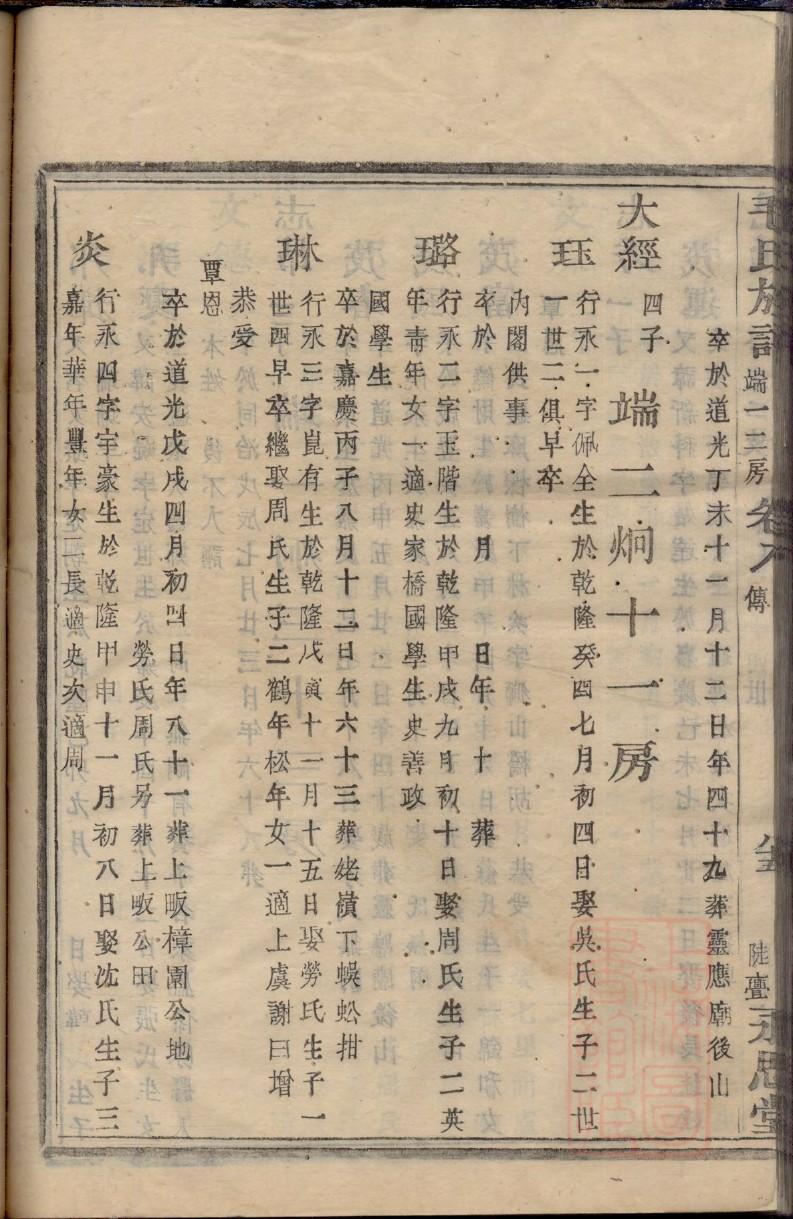 毛氏族譜 端一二房 卷八 傳 陸臺 永思堂
卒於道光丁未十一月十二日年四十九葬靈應廟後山
大經 四子 端二炯十一房
珏 行永一字佩全生於乾隆癸酉七月初四日娶吳氏生子二世
一世二俱早卒
內閣供事
卒於 月 日年 十 葬
璐 行永二字玉階生於乾隆甲戌九月初十日娶周氏生子二英
年青年女一適史家橋國學生史善政
國學生
卒於嘉慶丙子八月十二日年六十三葬姥嶺下蜈蚣拑
琳 行永三字崑有生於乾隆戊寅十一月十五日娶勞氏生子一
世四早卒繼娶周氏生子二鶴年松年女一適上虞謝曰增
恭爱
覃恩
卒於道光戊戌四月初四日年八十一葬上畈樟園公地
勞氏周氏另葬上畈公田
炎 行永四字宇豪生於乾隆甲申十一月初八日娶沈氏生子三
嘉年華年豐年女二長適史次適周